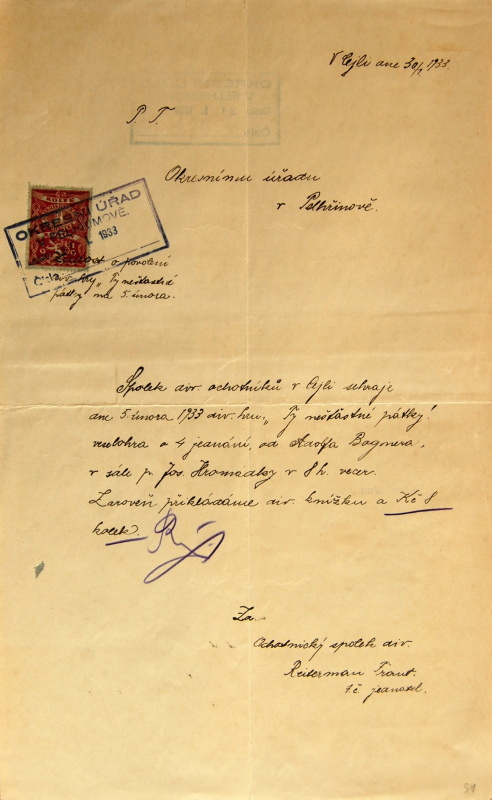 V Cejli dne 30/1 1933.
P. T.
Okresnímu úřadu
v Pelhřimově.
OKRESNÍ ÚŘAD
1933
Číslo
o povolení
div. hry „Ty nešťastné
pátky na 5. února.
Spolek div. ochotníků v Cejli sehraje
dne 5. února 1933 div. hru „Ty nešťastné pátky!
veselohra o 4 jednání, od Adolfa Bognera,
v sále p. Jos. Hromádky v 8 h. večer.
Zároveň přikládáme div. knížku a Kč 8
kolek).
Za
Ochotnický spolek div.
Reiterman Frant.
t.č. jednatel.
51